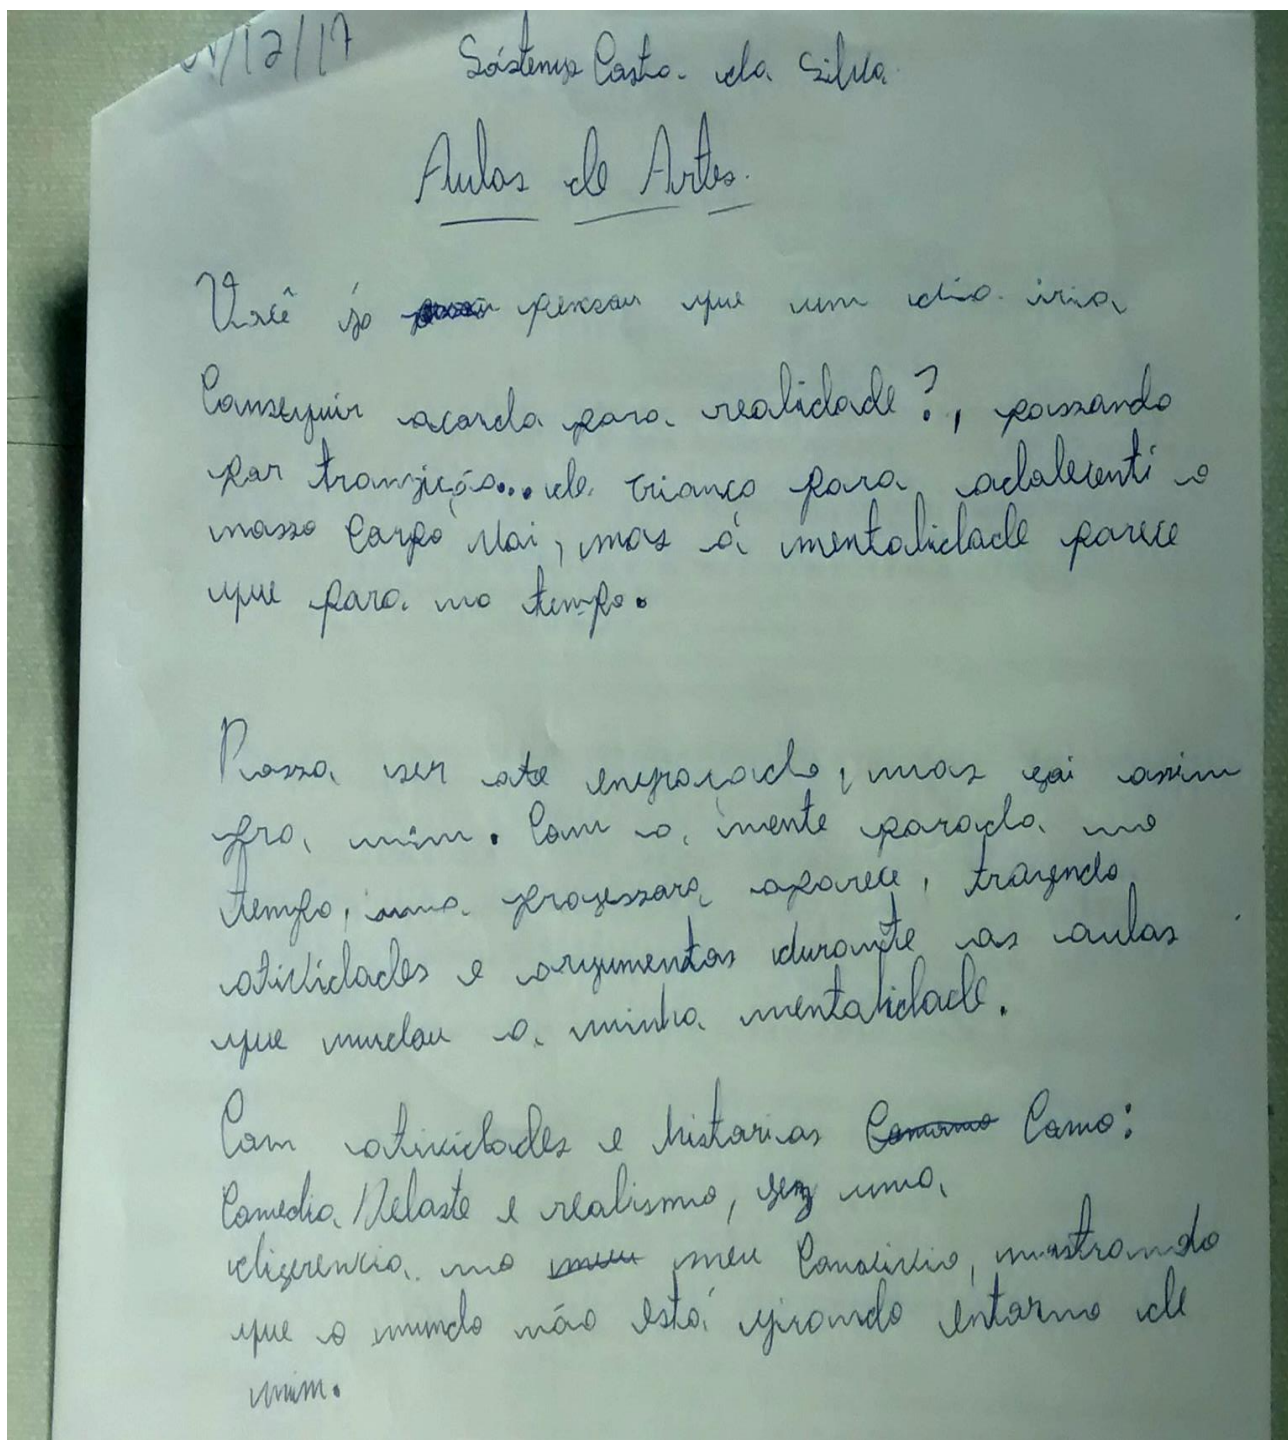 /12/17
Sóstenys Costa da Silva
Aulas de Artes.
Você já pensou que um dia iria
Conseguir acorda para realidade?, passando
por tranzição... de criança para adolecenti o
nosso Corpo vai, mas á mentalidade parece
que para no tempo.
Possa ser ate engraçado, mas foi assim
pra mim. Com a mente parada no
tempo, uma professora aparece, trazendo
atividades e argumentos durante as aulas
que mudou a minha mentalidade.
Com atividades e historias Como:
Comedia Delaste e realismo, fez uma
diferencia no meu Convivio, mostrando
que o mundo não está girando entorno de
mim.